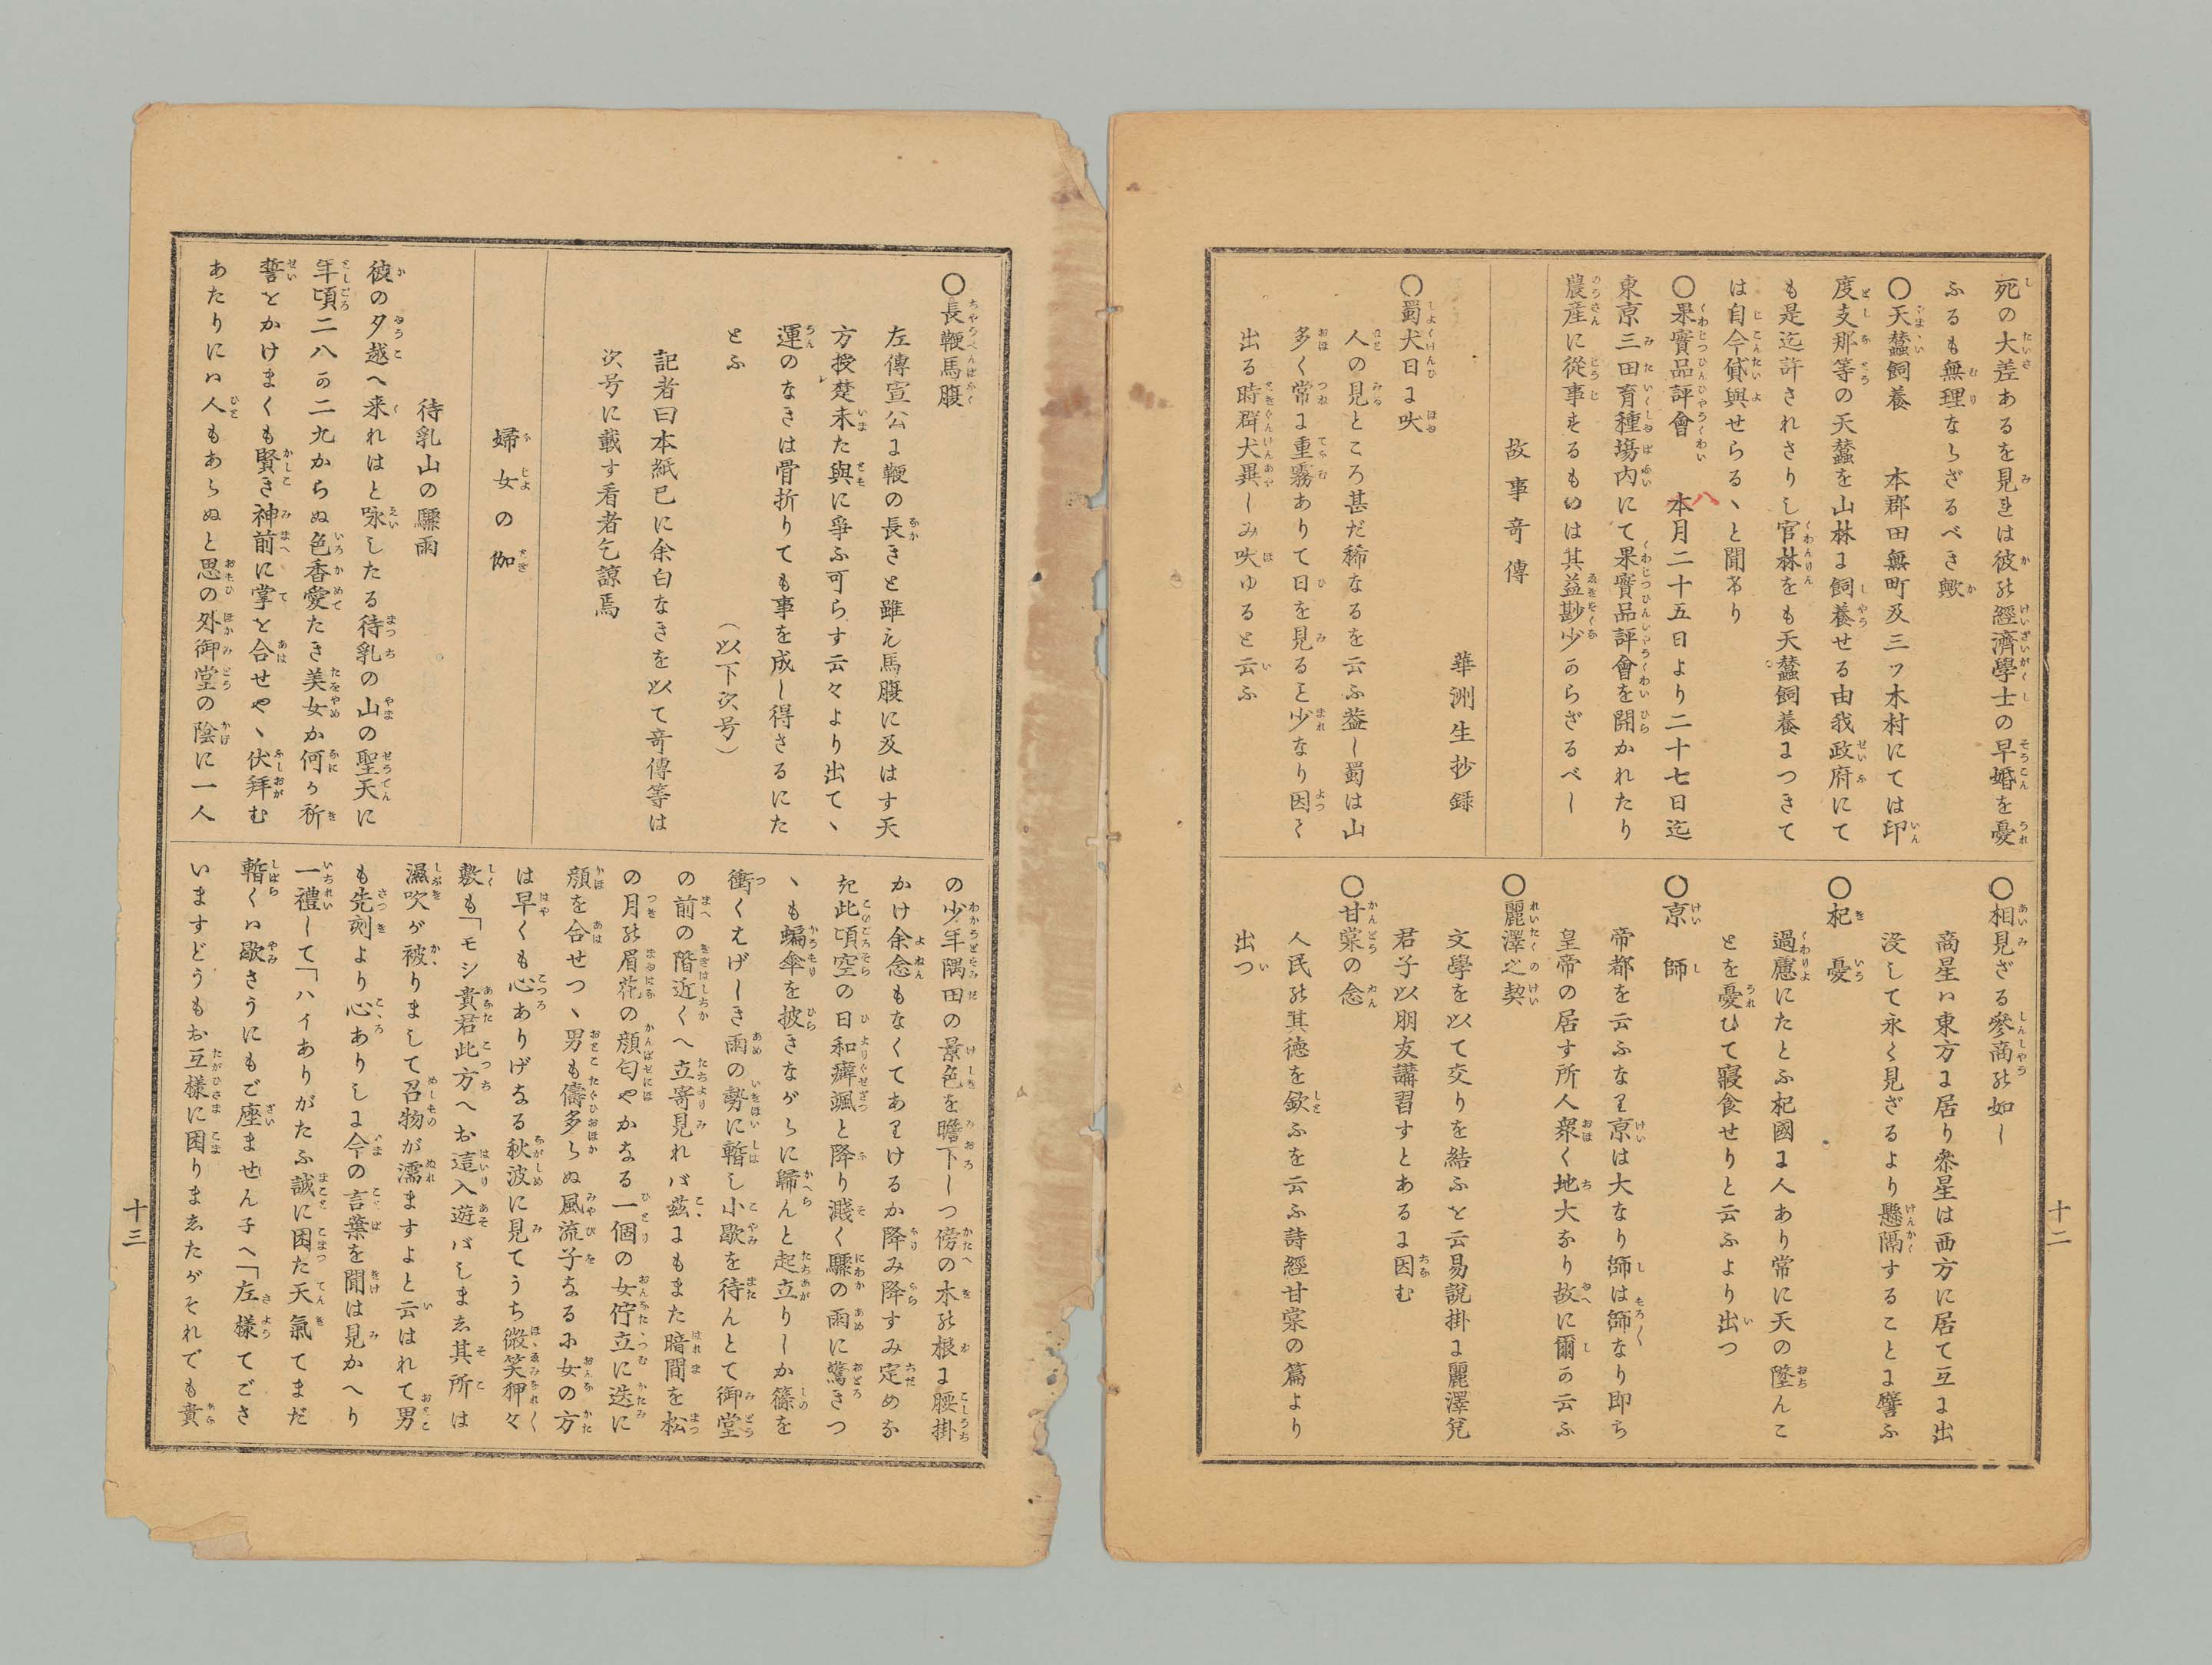 死の大差あるを見れは彼の經濟學士の早婚を憂
ふるも無理ならざるべき歟
〇天蠶飼養　　本郡田無町及三ツ木村にては印
度支那等の天蠶を山林に飼養せる由我政府にて
も是迄許されさりし官林をも天蠶飼養につきて
は自今貸與せらるヽと聞けり
〇果實品評會　　本月二十五日より二十七日迄
八
東京三田育種場内にて果實品評會を開かれたり
農産に從事するものは其益尠少ならざるべし
故事奇傳
華洲生抄録
〇蜀犬日に吠
人の見ところ甚だ稀なるを云ふ葢し蜀は山
多く常に重霧ありて日を見ると少なり因て
出る時群犬異しみ吠ゆると云ふ
〇相見ざる參商の如し
商星ハ東方に居り參星は西方に居て互に出
没して永く見ざるより懸隔することに譬ふ
〇杞憂
過慮にたとふ杞國に人あり常に天の墜んこ
とを憂ひて寢食せりと云ふより出つ
〇京師
帝都を云ふなり京は大なり師は師なり即ち
皇帝の居す所人衆く地大なり故に爾の云ふ
〇麗澤之契
文學を以て交りを結ふと云易說掛に麗澤兌
君子以朋友講習すとあるに因む
〇甘棠の念
人民の其徳を欽ふを云ふ詩經甘棠の篇より
出つ
十二
〇長鞭馬腹
左傳宣公に鞭の長きと雖も馬腹に及はす天
方授楚未た與に爭ふ可らす云々より出てヽ
運のなきは骨折りても事を成し得さるにた
とふ
（以下次号）
記者曰本紙已に余白なきを以て奇傳等は
次号に載す看者乞諒焉
婦女の伽
待乳山の驟雨
彼の夕越へ来れはと咏したる待乳の山の聖天に
年頃二八の二九からぬ色香愛たき美女か何か祈
誓とかけまくも賢き神前に掌と合せやヽ伏拜む
あたりにハ人もあらぬと思の外御堂の陰に一人
の少年隅田の景色を瞻下しつ傍の木の根に腰掛
かけ余念もなくてありけるか降み降すみ定めな
き此頃空の日和癖颯と降り濺く驟の雨に驚きつ
ヽも蝙傘を披きながらに歸んと起立りしか篠を
衝くはげしき雨の勢に暫し小歇を待んとて御堂
の前の階近くへ立寄見れバ茲にもまた暗間を松
の月の眉花の顔匂やかなる一個の女佇立に迭に
顔を合せつヽ男も儔多らぬ風流子なるに女の方
は早くも心ありげなる秋波に見てうち微笑狎々
敷も「モシ貴君此方へお這入遊バしまゑ其所は
濕吹が被りまして召物が濡ますよと云はれて男
も先刻より心ありしに今の言葉を聞は見かへり
一禮して「ハイありがたふ誠に困た天氣てまだ
暫くハ歇さうにもご座ません子へ「左様てござ
いますどうもお互様に困りまゑたがそれでも貴
十三